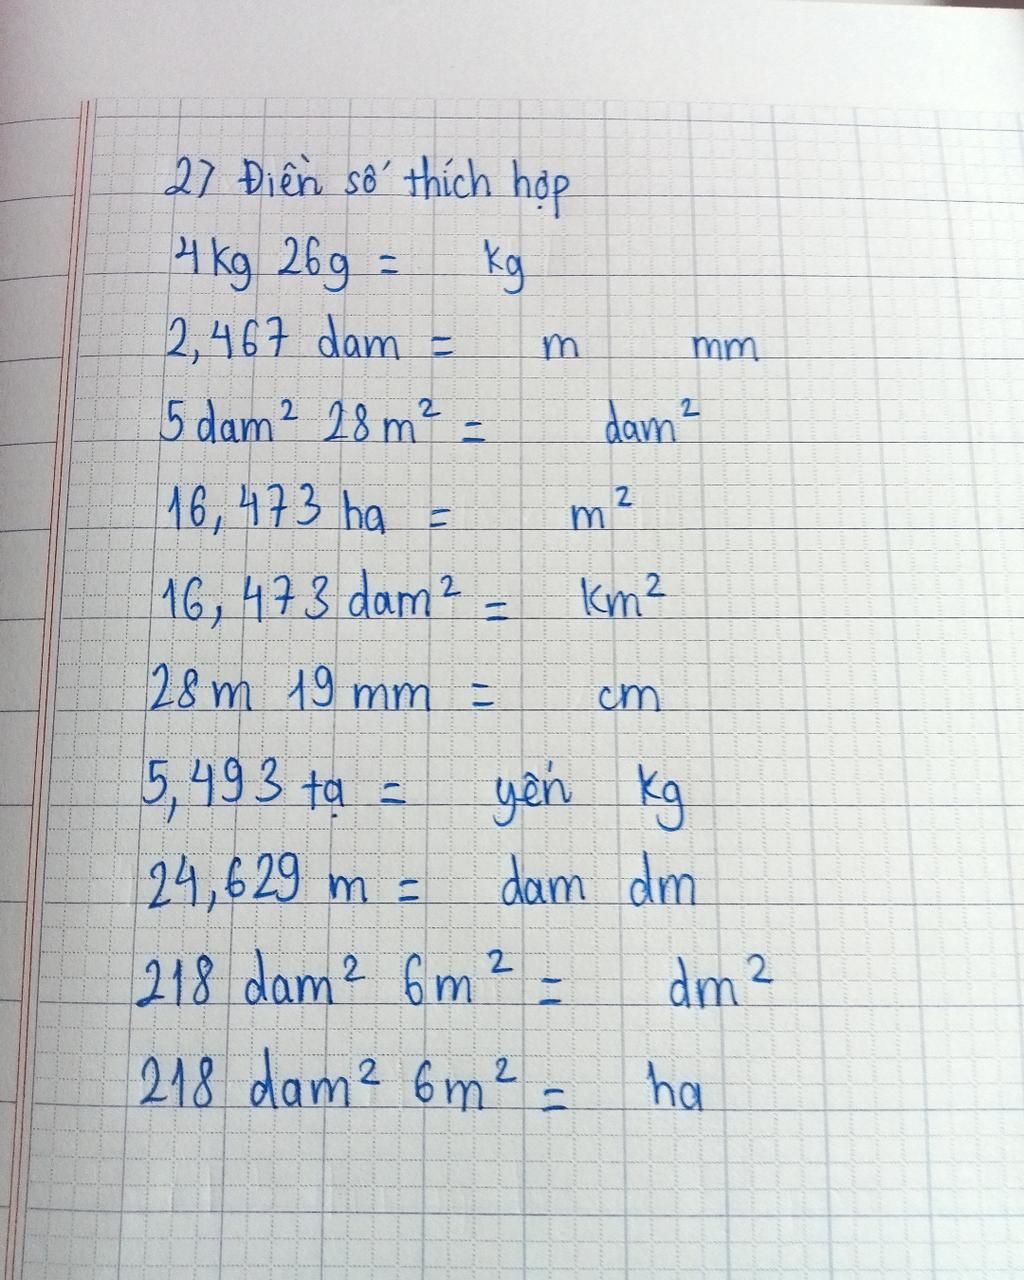 27 Điền số thích hợp
4kg 26g = kg
2,467 dam = m mm
5 dam² 28 m² = dam²
16,473 ha = m²
16,473 dam² = km²
28 m 19 mm = cm
5,493 tạ = yến kg
24,629 m = dam dm
218 dam² 6m² = dm²
218 dam² 6m² = ha